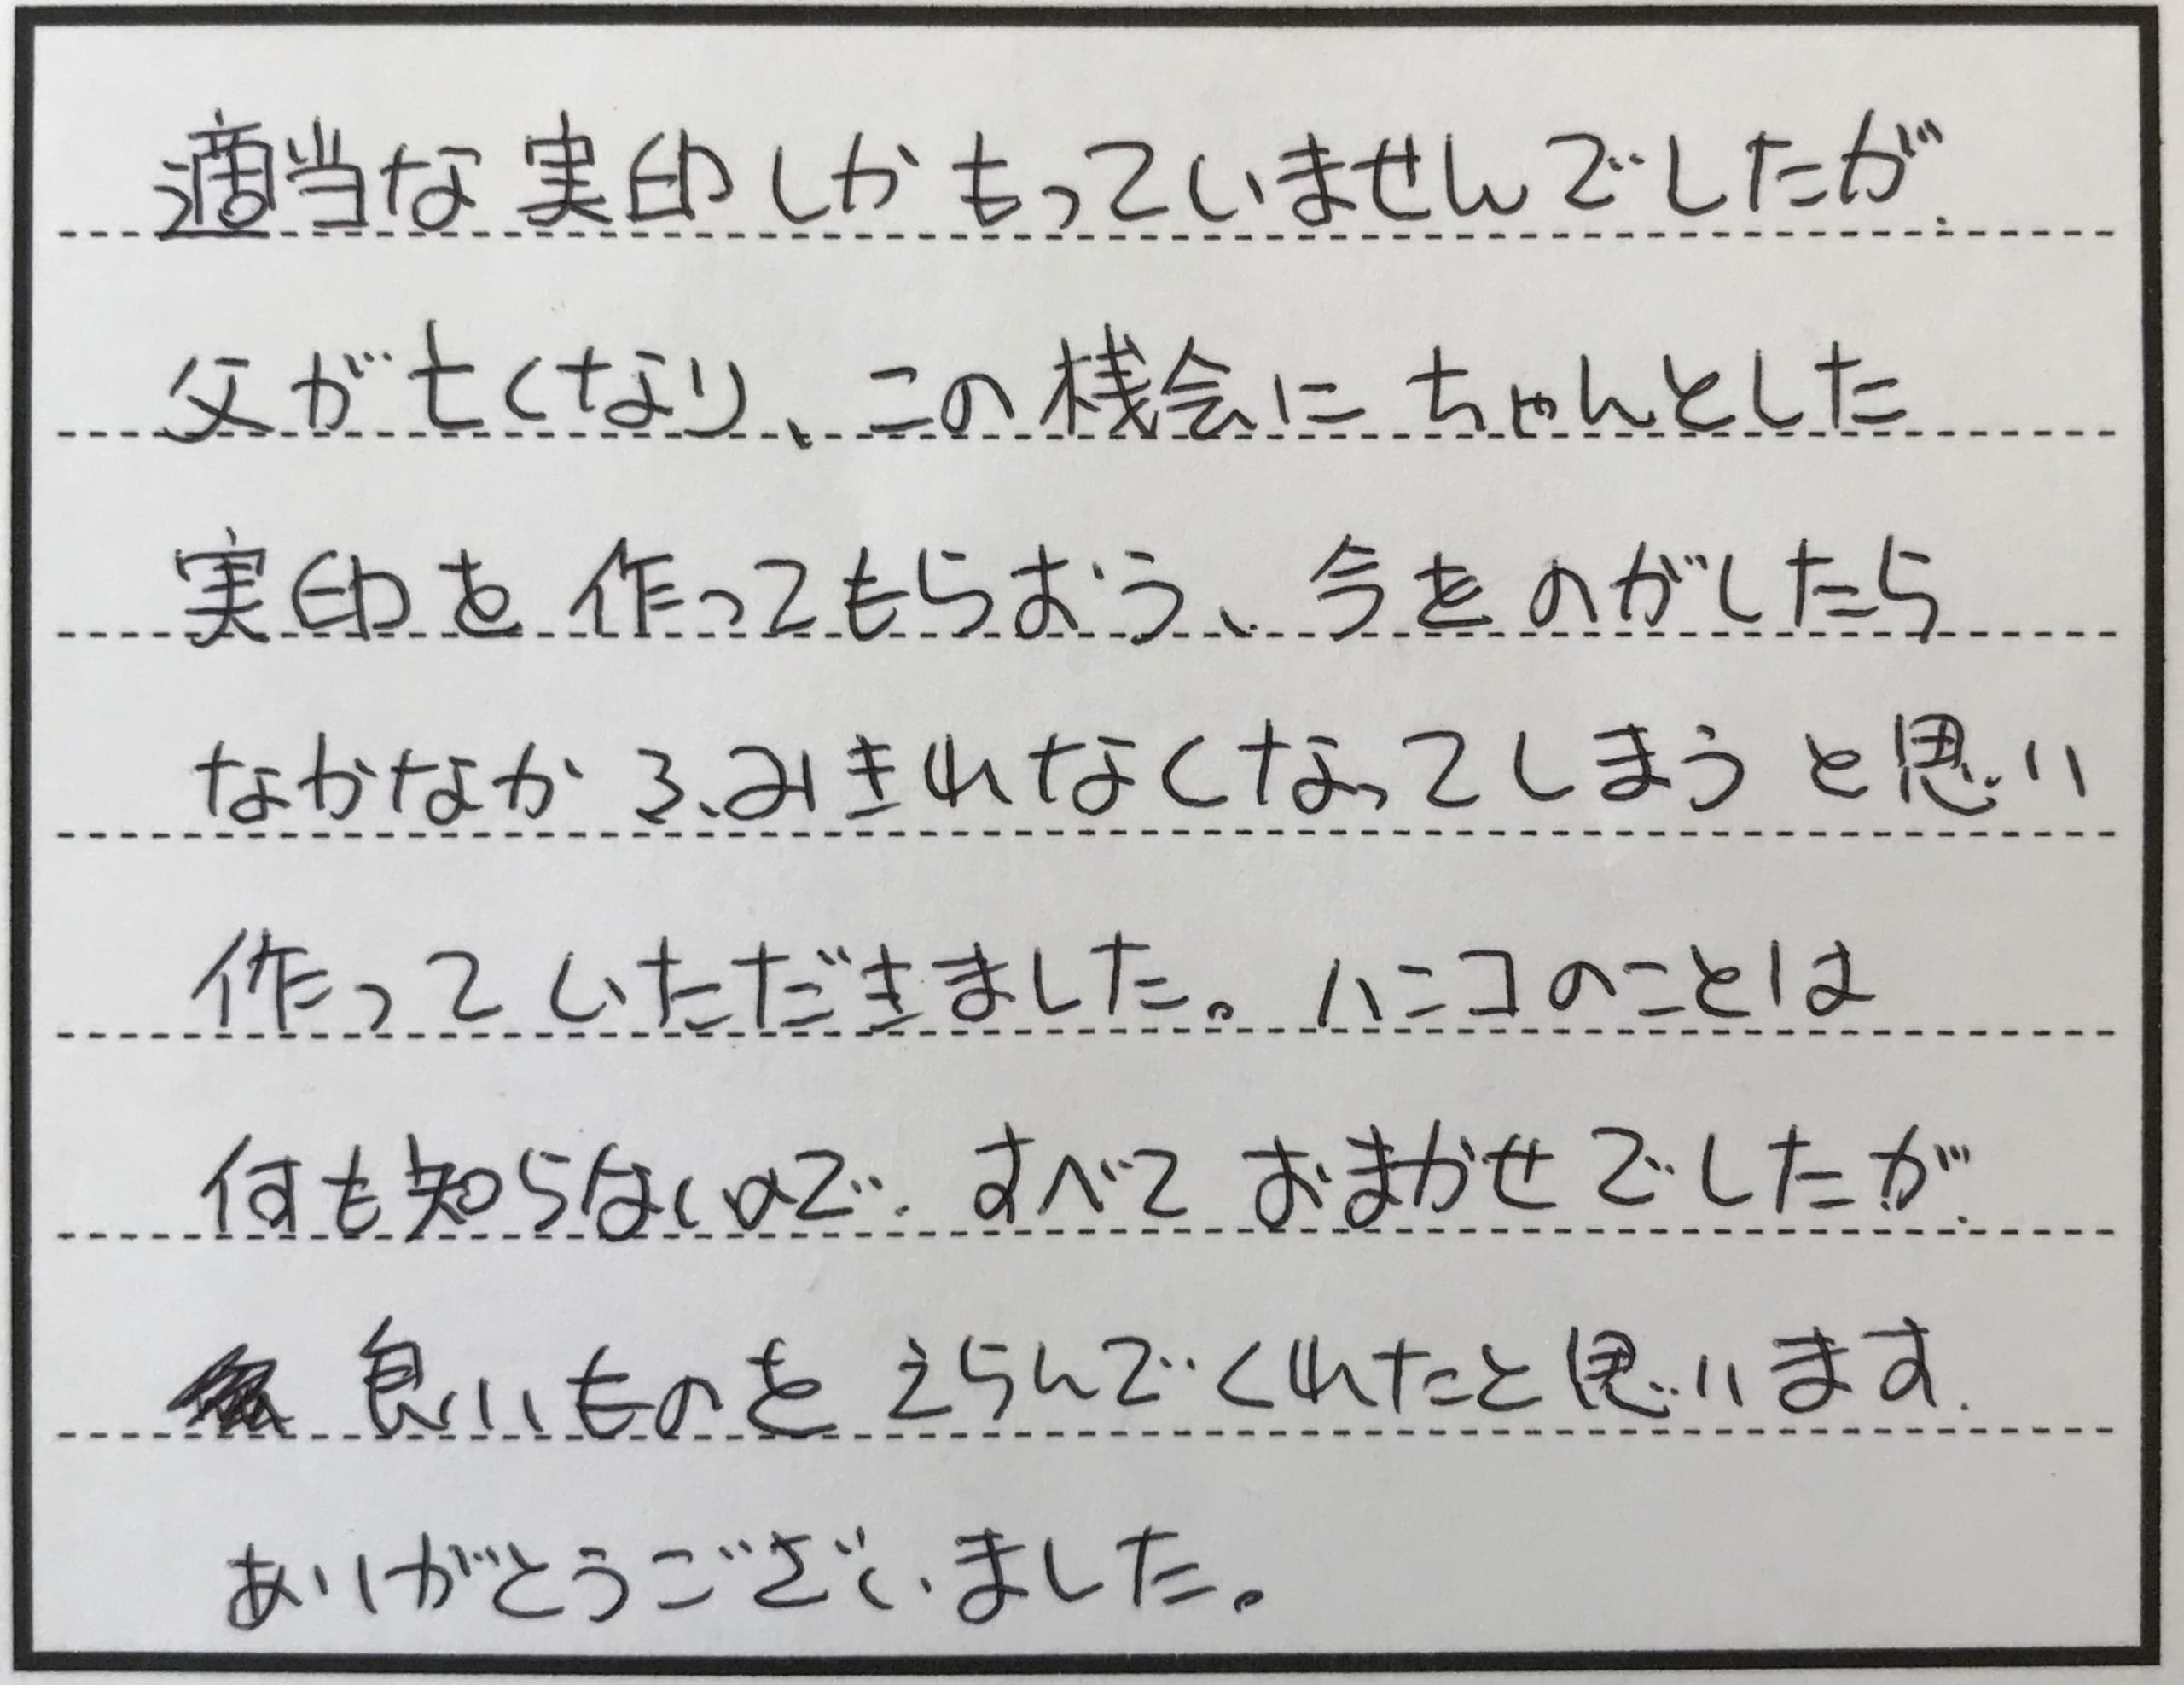 適当な実印しかもっていませんでしたが、
父が亡くなり、この機会にちゃんとした
実印を作ってもらおう、今をのがしたら
なかなかふみきれなくなってしまうと思い
作っていただきました。ハンコのことは
何も知らないので、すべておまかせでしたが、
良いものをえらんでくれたと思います。
ありがとうございました。